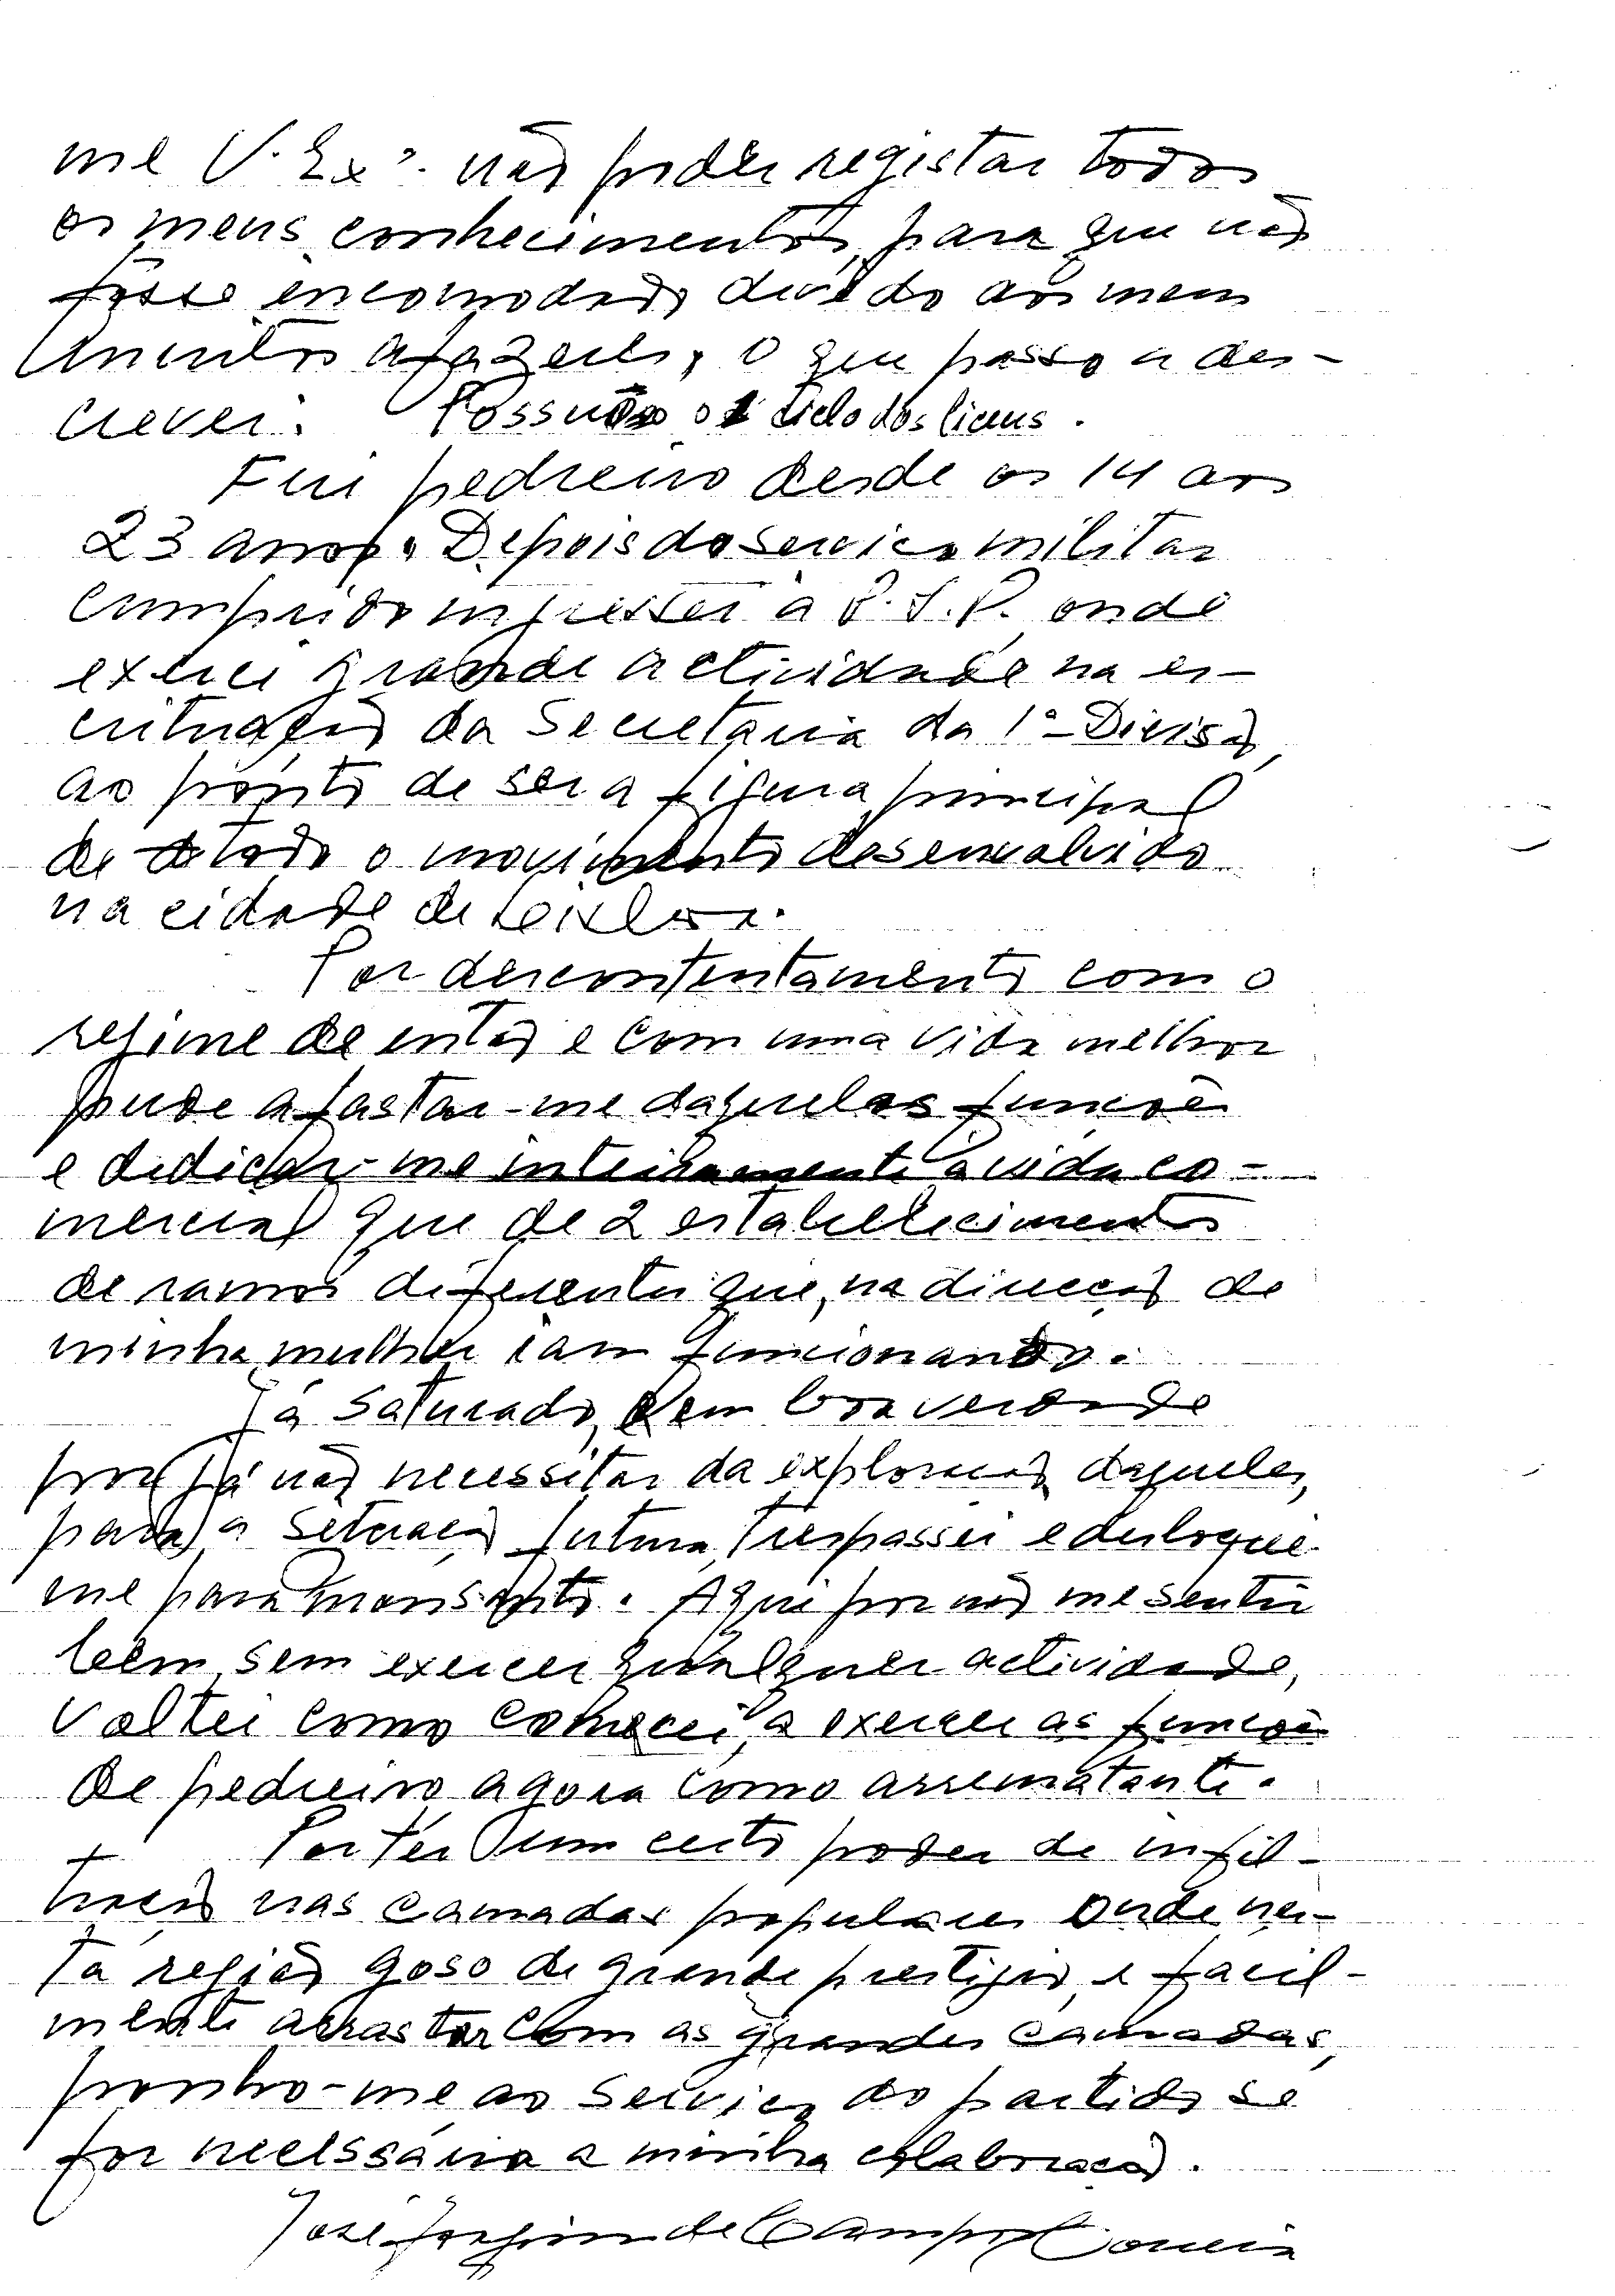 me V. Exª. não poder registar todos
os meus conhecimentos, para que não
fosse encomodado, divido aos meus
muitos afazeres, o que passo a des-
crever. Possuo o 1 ciclo dos liceus.
Fui pedreiro desde os 14 aos
23 anos. Depois do serviço militar
cumprido ingressei à P.S.P. onde
exerci grande actividade na es-
crituração da Secretaria da 1ª Divisão,
ao ponto de ser a figura principal
de todo o movimento desenvolvido
na cidade de Lisboa.
Por descontentamento com o
regime de então e com uma vida melhor
pude afastar-me daquelas funções
e dedicar-me inteiramente à vida co-
mercial que de 2 estabelecimentos
de ramos diferentes que, na direcção de
minha mulher iam funcionando.
Já saturado, e em boa verdade
por já não necessitar da exploração daqueles,
para a setuação futura, trespassei e desloquei-
me para Monsanto. Aqui por não me sentir
bem, sem exercer qualquer actividade,
voltei como comecei, a exercer as funções
de pedreiro agora como arrematante.
Por têr um certo poder de infil-
tração nas camadas populares onde nes-
ta região goso de grande prestigio, e facil-
mente arrastar com as grandes camadas,
ponho-me ao serviço do partido se
for necessária a minha colaboração.
José Joaquim de Campos Correia